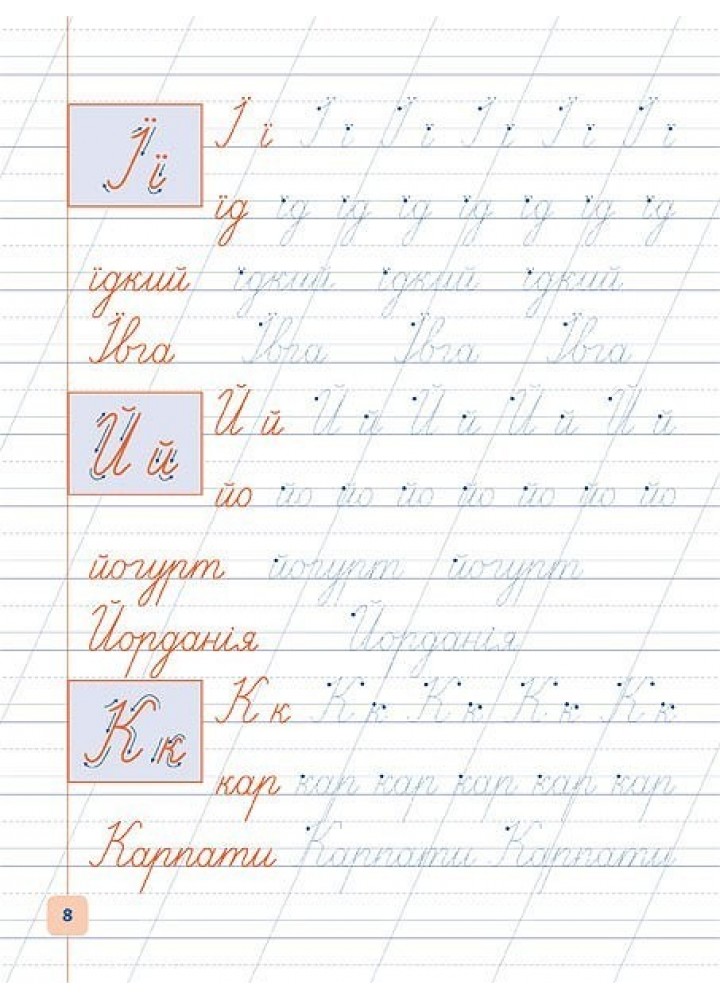 Ї ї
Ї ї Ї ї Ї ї Ї ї Ї ї Ї ї
їд їд їд їд їд їд їд їд
їдкий їдкий їдкий їдкий
Ївга Ївга Ївга Ївга
Й й
Й й Й й Й й Й й Й й
йо йо йо йо йо йо йо йо
йогурт йогурт йогурт
Йорданія Йорданія
К к
К к К к К к К к К к
кар кар кар кар кар кар
Карпати Карпати Карпати
8